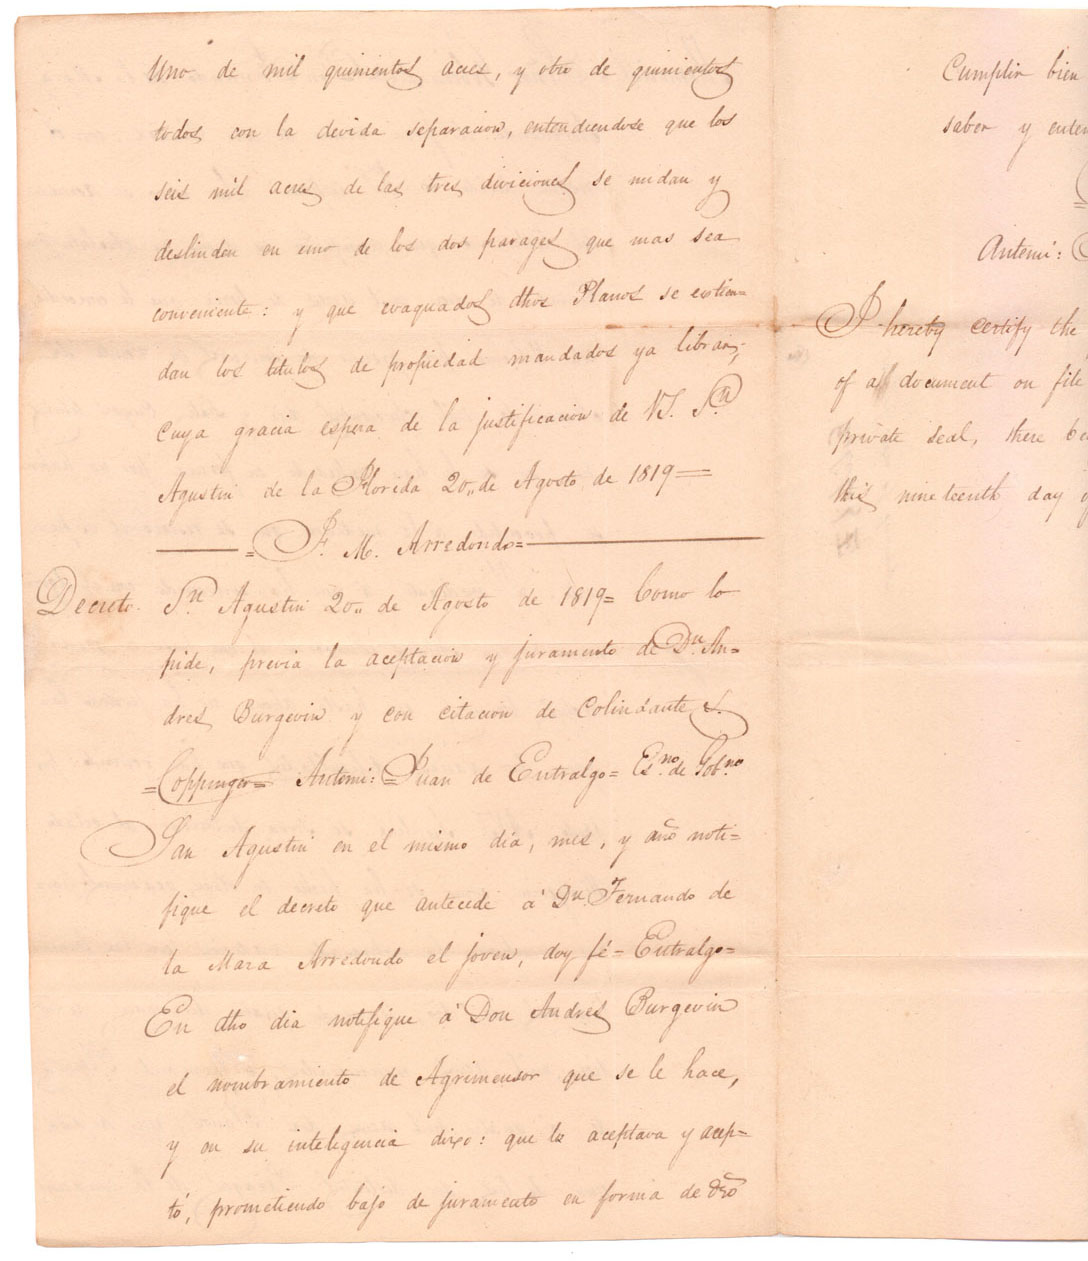 Uno de mil quinientos acres, y otro de quinientos
todos con la devida separacion, entendiendose que los
seis mil acres de las tres diviciones se midan y
deslinden en uno de los dos parages que mas sea
conveniente: y que evaquados dhos Planos se estien=
dan los titulos de propiedad mandados ya librar,
cuya gracia espera de la justificacion de VS. Sn
Agustin de la Florida 20,, de Agosto de 1819=
=F. M. Arredondo=
Decreto. Sn Agustin 20,, de Agosto de 1819= Como lo
pide, previa la aceptacion y juramento de Dn An=
dres Burgevin y con citacion de Colindantes.
=Coppinger= Antemi: =Juan de Entralgo= Esno de Gobno
San Agustin en el mismo dia, mes, y año noti=
fique el decreto que antecede á Dn Fernando de
la Maza Arredondo el joven, doy fé= Entralgo=
En dho dia notifique á Don Andres Burgevin
el nombramiento de Agrimensor que se le hace,
y en su inteligencia dixo: que la aceptava y acep=
tó, prometiendo bajo de juramento en forma de dro
Cumplir bien
saber y enten
Antemi:
I hereby certify the
of a document on file
private seal, there be
this nineteenth day